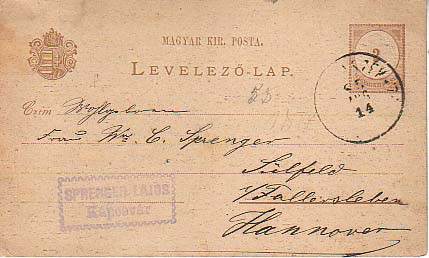 MAGYAR KIR. POSTA.
LEVELEZŐ-LAP.
2
53
14
Czim Wohlgeboren
Frau Wwe. C. Sprenger
Sülfeld
b/Fallersleben
Hannover
SPRENGER LAJOS
Kaposvár